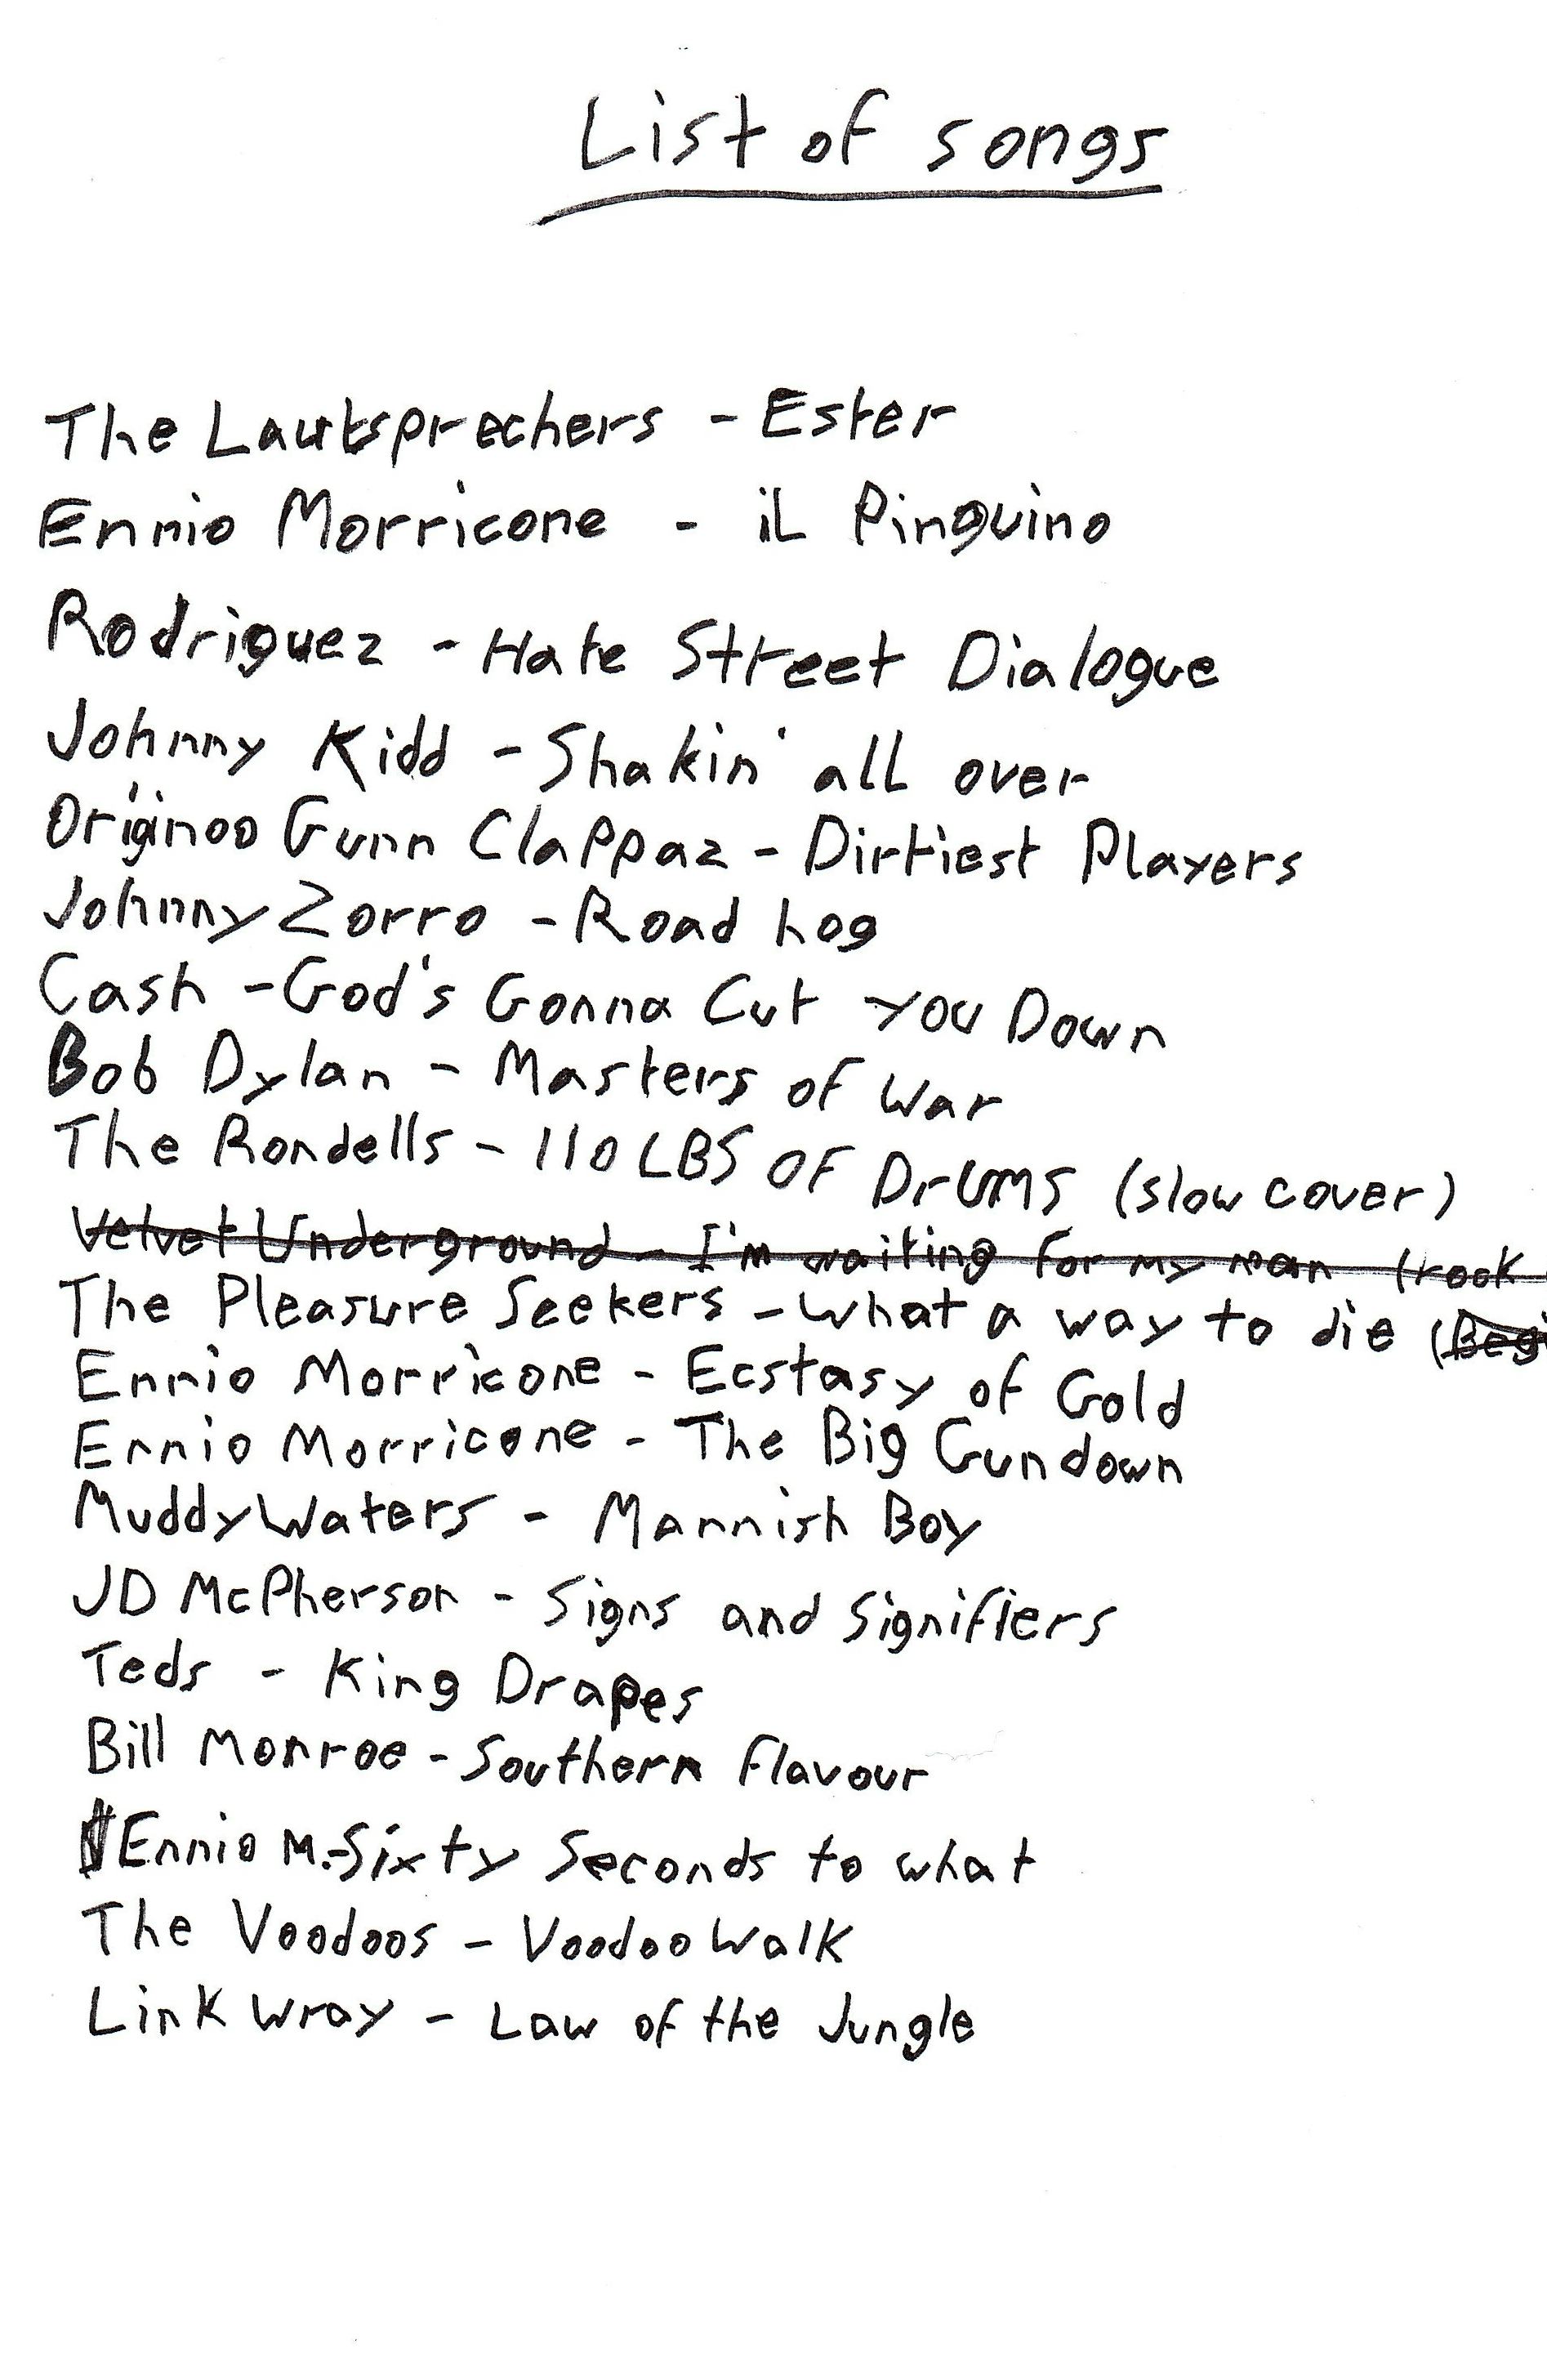 List of songs
The Lautsprechers - Ester
Ennio Morricone - iL Pinguino
Rodriguez - Hate Street Dialogue
Johnny Kidd - Shakin' all over
Originoo Gunn Clappaz - Dirtiest Players
Johnny Zorro - Road hog
Cash - God's Gonna Cut You Down
Bob Dylan - Masters of War
The Rondells - 110 LBS OF DrUMS (slow cover)
Velvet Underground - I'm waiting for my man (rook
The Pleasure Seekers - What a way to die (Begi
Ennio Morricone - Ecstasy of Gold
Ennio Morricone - The Big Gundown
Muddy Waters - Mannish Boy
JD McPherson - Signs and Signifiers
Teds - King Drapes
Bill Monroe - Southern flavour
Ennio M. - Sixty Seconds to what
The Voodoos - Voodoo Walk
Link Wray - Law of the Jungle